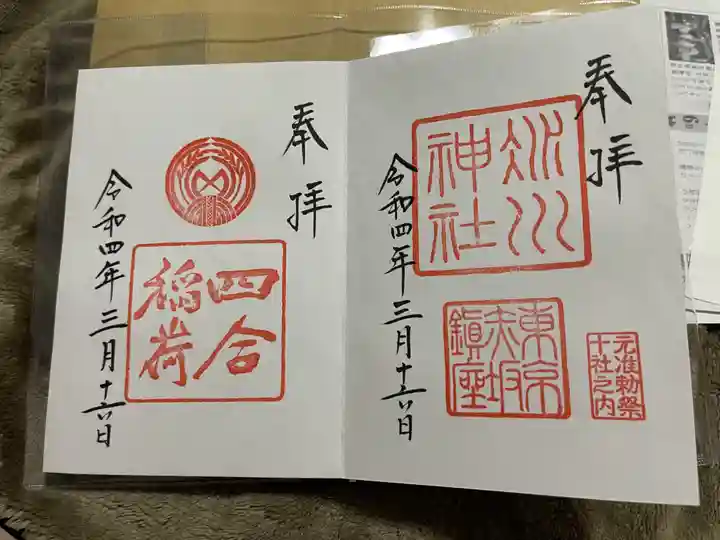 奉拝
冰川
神社
東京
赤坂
鎭座
元准勅祭
十社之内
令和四年三月十六日
奉拝
四合
稲荷
令和四年三月十六日